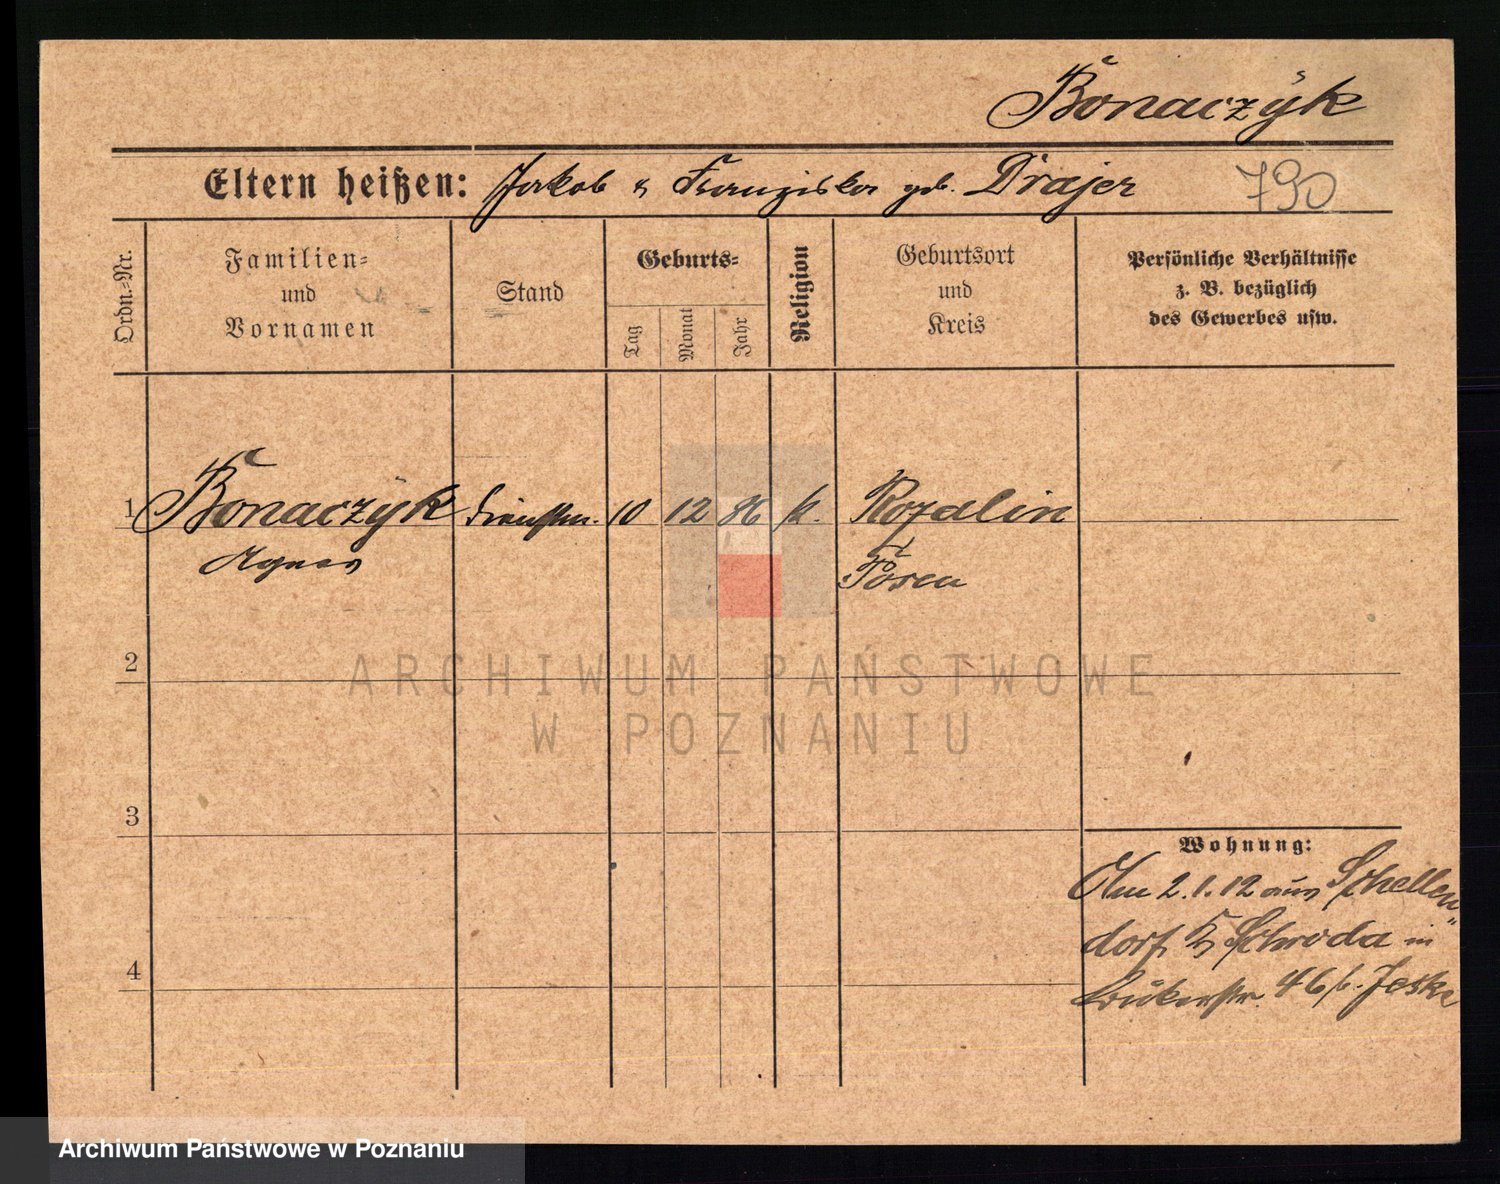 Bonaczyk
Eltern heißen: Jakob u Franziska geb. Drajer 790
Ordn.=Nr.
Familien=
und
Vornamen
Stand
Geburts=
Tag
Monat
Jahr
Religion
Geburtsort
und
Kreis
Persönliche Verhältnisse
z. B. bezüglich
des Gewerbes usw.
1 Bonaczyk Dienstm. 10 12 86 k. Rozalin
Agnes Posen
2
ARCHIWUM PAŃSTWOWE
W POZNANIU
3
Wohnung:
Am 2.1.12 aus Schellen
dorf, Schroda in
46 b. Jeske
4
Archiwum Państwowe w Poznaniu